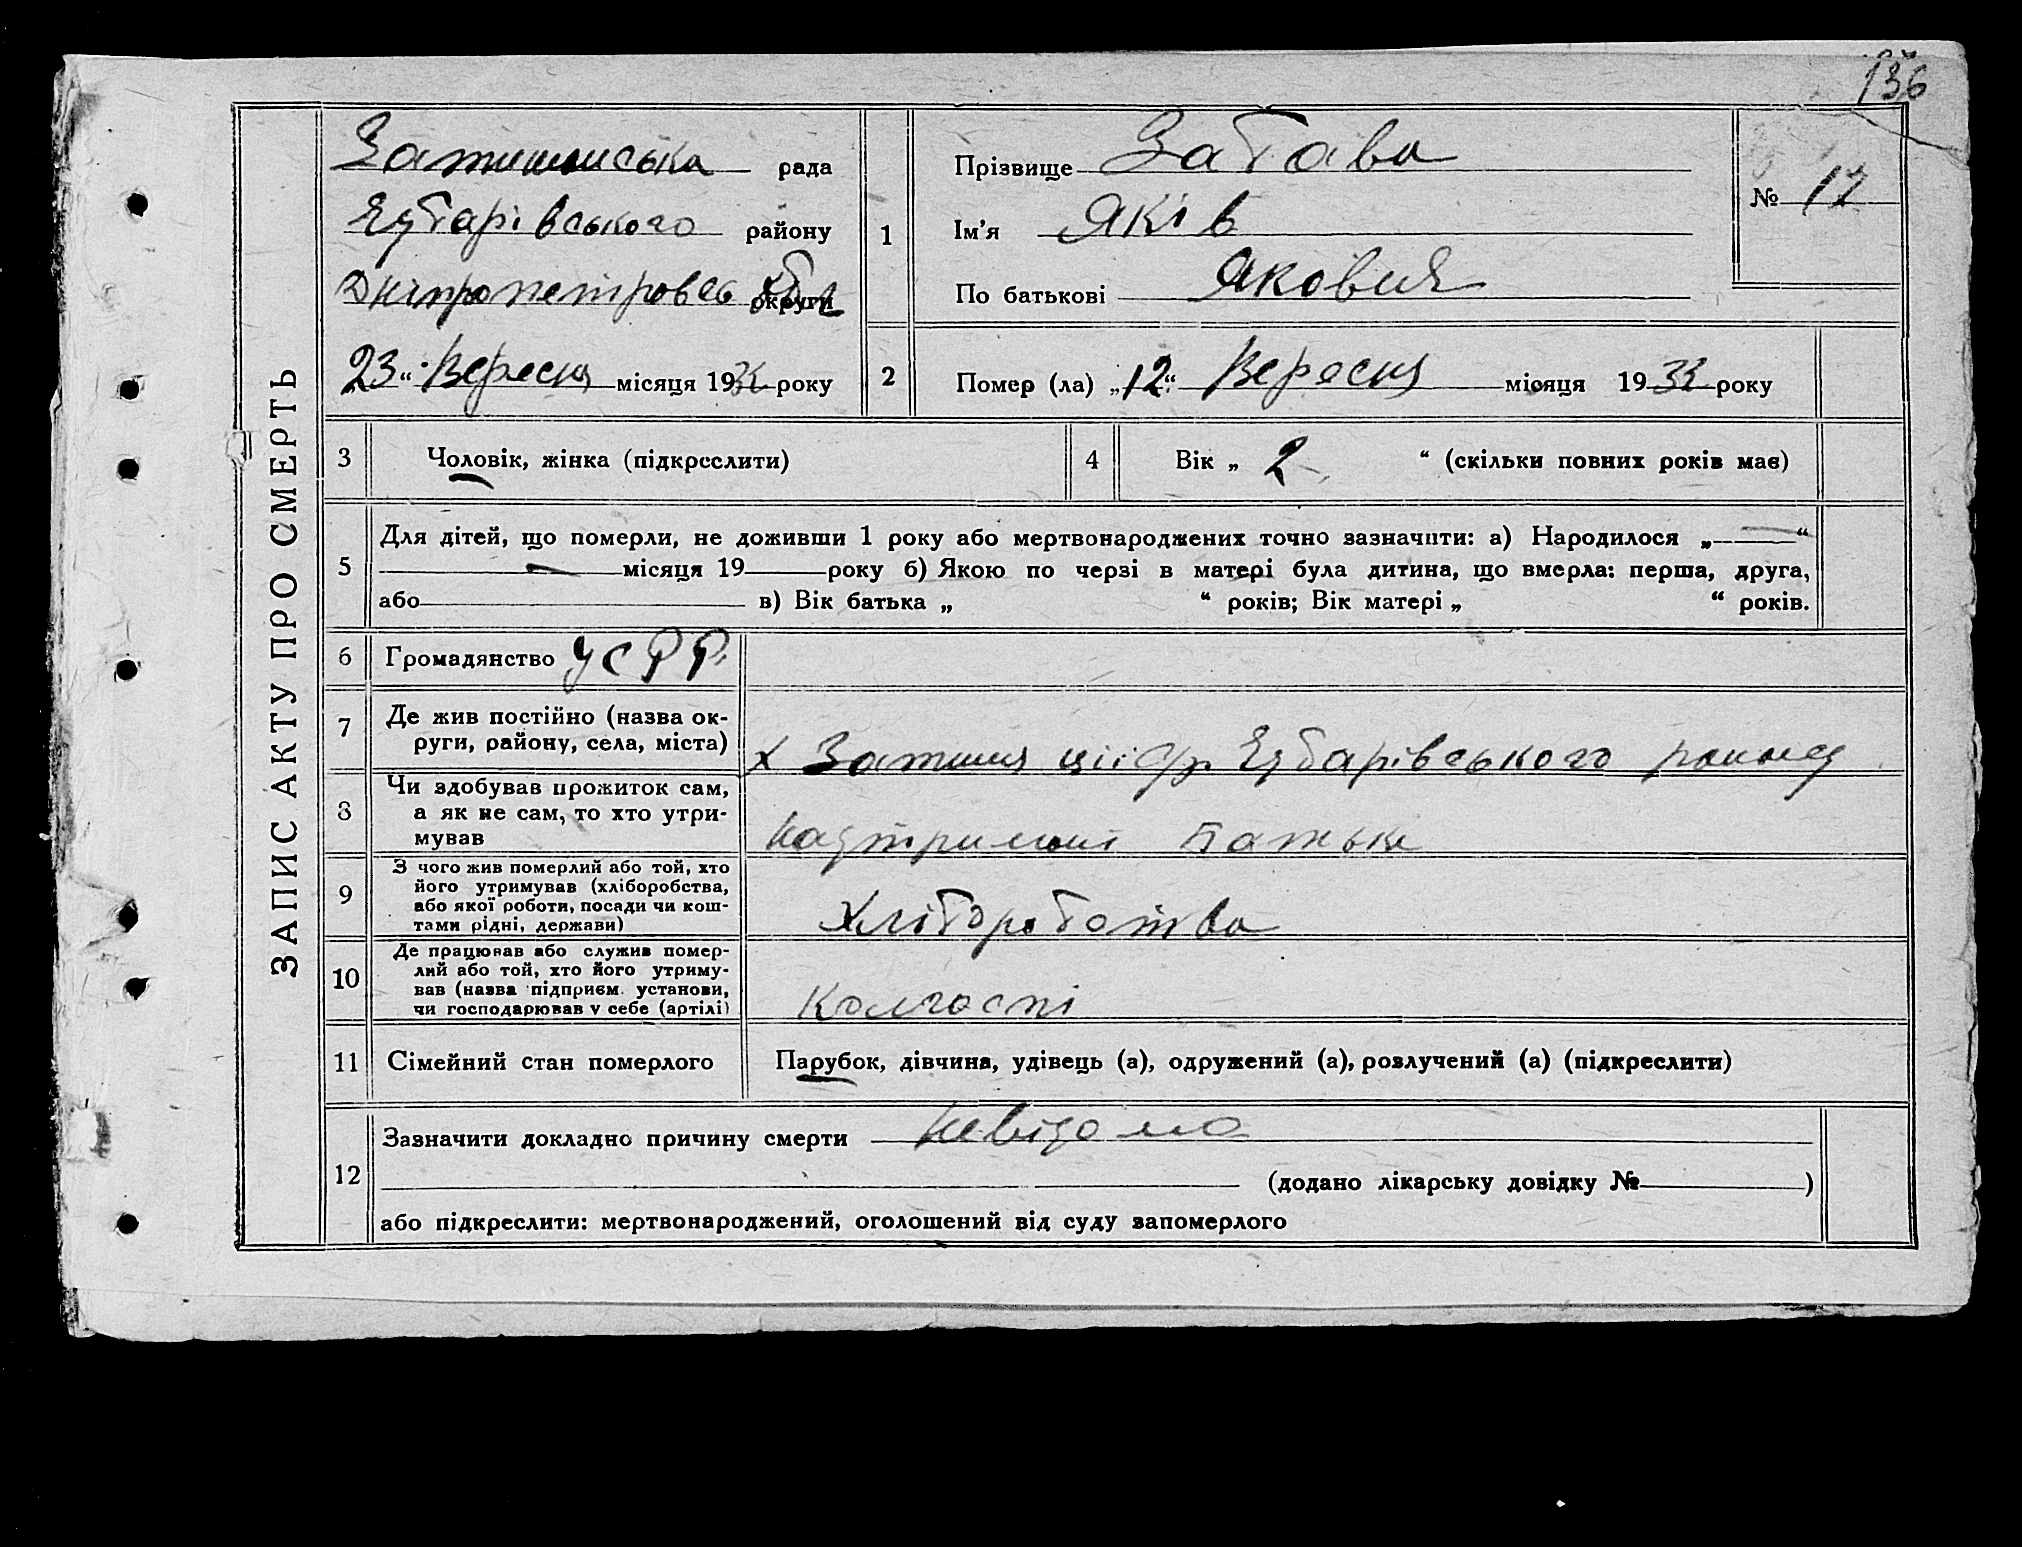 136
ЗАПИС АКТУ ПРО СМЕРТЬ
Затишанська рада
Еубарівського району
Дніпропетровсь обл округи
23 “ Вересня місяця 1933 року
1
Прізвище Забава
Ім’я Яків
По батькові Якович
№ 17
2
Помер (ла) „12“ Вересня місяця 1933 року
3
Чоловік, жінка (підкреслити)
4
Вік „ 2 “ (скільки повних років має)
5
Для дітей, що померли, не доживши 1 року або мертвонароджених точно зазначити: а) Народилося „ — “
— місяця 19 року б) Якою по черзі в матері була дитина, що вмерла: перша, друга,
або в) Вік батька „ “ років; Вік матері „ “ років.
6
Громадянство УСРР.
7
Де жив постійно (назва ок-
руги, району, села, міста)
х Затишя ції Еубарівського району
8
Чи здобував прожиток сам,
а як не сам, то хто утри-
мував
Батька
9
З чого жив померлий або той, хто
його утримував (хліборобства,
або якої роботи, посади чи кош-
тами рідні, держави)
Хліборобства
10
Де працював або служив помер-
лий або той, хто його утриму-
вав (назва підприєм. установи,
чи господарював у себе (артілі)
Колгоспі
11
Сімейний стан померлого
Парубок, дівчина, удівець (а), одружений (а), розлучений (а) (підкреслити)
12
Зазначити докладно причину смерти Невідомо
(додано лікарську довідку № )
або підкреслити: мертвонароджений, оголошений від суду запомерлого